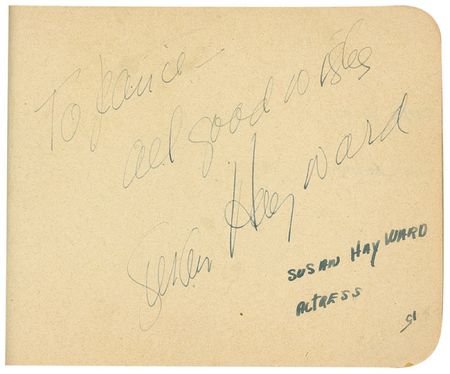 To Janice –
all good wishes
Susan Hayward
SUSAN HAYWARD
ACTRESS